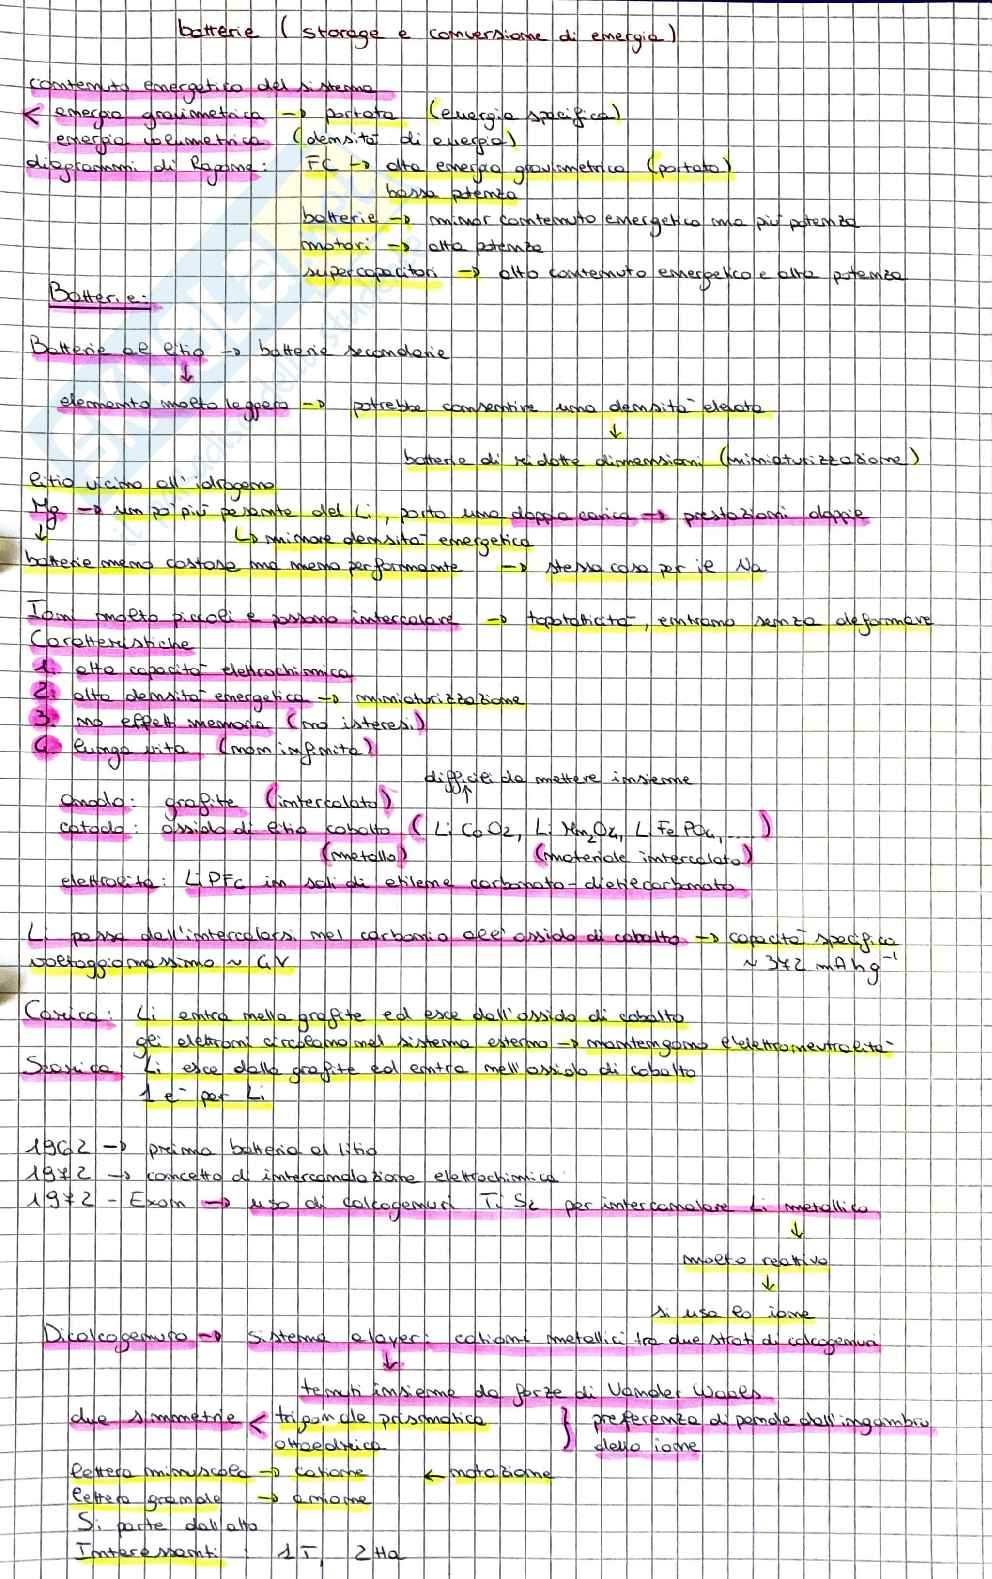 batterie (storage e conversione di energia)
contenuto energetico del sistema
< energia gravimetrica → portata (energia specifica)
energia volumetrica (densità di energia)
diagrammi di Ragone: FC → alta energia gravimetrica (portata)
bassa potenza
batterie → minor contenuto energetico ma più potenza
motori → alta potenza
supercapacitori → alto contenuto energetico e alta potenza
Batterie:
Batterie al litio → batterie secondarie
↓
elemento molto leggero → potrebbe consentire una densità elevata
↓
batterie di ridotte dimensioni (miniaturizzazione)
litio vicino all'idrogeno
Mg → un po' più pesante del Li, porta una doppia carica → prestazioni doppie
↓ ↳ minore densità energetica
batterie meno costose ma meno performante → stessa cosa per il Na
Ioni molto piccoli e possono intercalare → topotatticità, entrano senza deformare
Caratteristiche
1. alta capacità elettrochimica
2. alta densità energetica → miniaturizzazione
3. no effetti memoria (no isteresi)
4. lunga vita (non infinita)
difficili da mettere insieme
↑
anodo: grafite (intercalato)
catodo: ossido di litio cobalto (LiCoO2, LiMn2O4, LiFePO4, ....)
(metallo) (materiale intercalato)
elettrolita: LiPF6 in sali di etilene carbonato-dietilcarbonato
Li passa dall'intercalarsi nel carbonio all'ossido di cobalto → capacità specifica
voltaggio massimo ~ 4V ~ 372 mAhg⁻¹
Carica: Li entra nella grafite ed esce dall'ossido di cobalto
gli elettroni circolano nel sistema esterno → mantengono l'elettroneutralità
Scarica Li esce dalla grafite ed entra nell'ossido di cobalto
1 e⁻ per Li
1962 → prima batteria al litio
1972 → concetto di intercanalazione elettrochimica
1972 - Exon → uso di calcogenuri TiS2 per intercanalare Li metallico
↓
molto reattivo
↓
si usa lo ione
Dicalcogenuro → sistema a layer: cationi metallici tra due strati di calcogenuri
↓
tenuti insieme da forze di Vander Waals
due simmetrie < trigonale prismatica } preferenza dipende dall'ingombro
ottaedrica dello ione
lettera minuscola → catione ← notazione
lettera grande → anione
Si parte dall'alto
Interessanti: 1T, 2Ha